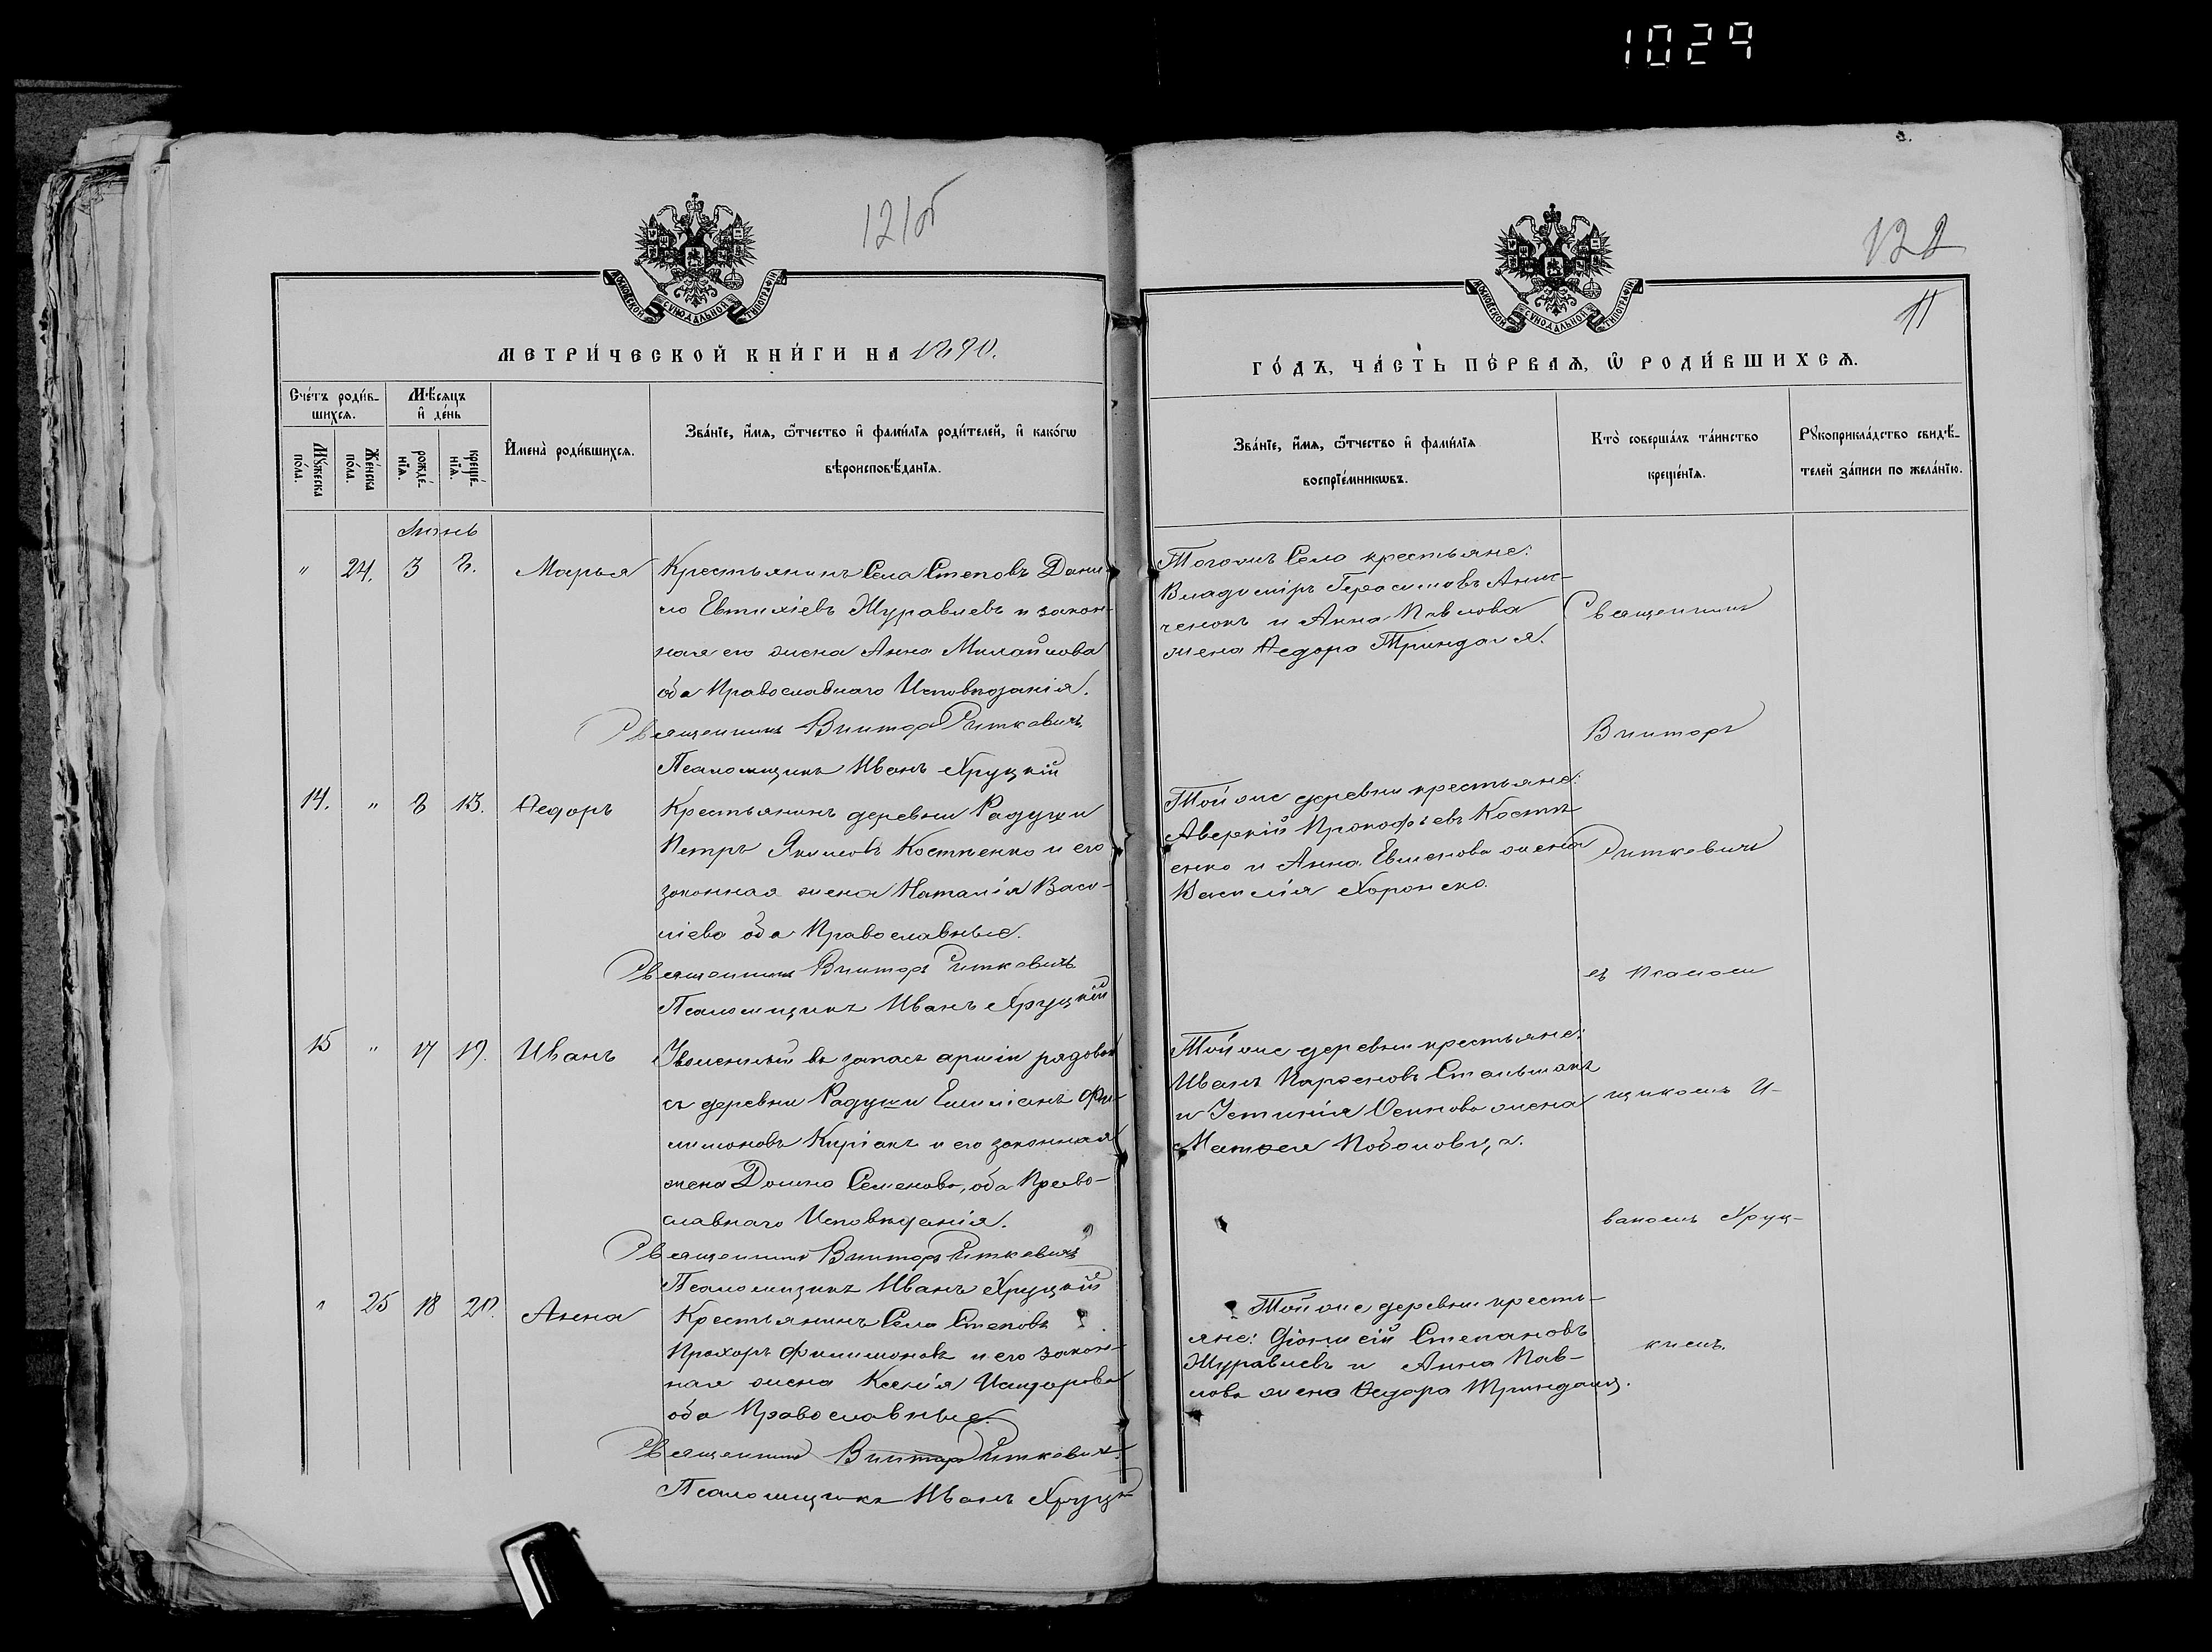 1029
121об
122
11
МОСКОВСКОЙ СѴНОДАЛЬНОЙ ТИПОГРАФІИ
МОСКОВСКОЙ СѴНОДАЛЬНОЙ ТИПОГРАФІИ
МЕТРИ́ЧЕСКОЙ КНИ́ГИ НА 1890.
ГО́ДЪ, ЧА́СТЬ ПЕ́РВАѦ, Ѿ РОДИ́ВШИХСѦ.
Сче́тъ роди́в-
шихсѧ.
Мѣ́сѧцъ
и҆ де́нь
Мꙋ́жеска по́ла.
Же́нска по́ла.
рожде́-нїѧ.
креще́-нїѧ.
И҆мена̀ роди́вшихсѧ.
Зва́нїе, и҆́мѧ, ѻ҆́тчество и҆ фами́лїѧ роди́телей, и҆ како́гѡ
вѣроисповѣ́данїѧ.
Зва́нїе, и҆́мѧ, ѻ҆́тчество и҆ фами́лїѧ
воспрїе́мникѡвъ.
Кто̀ соверша́лъ та́инство
креще́нїѧ.
Рꙋкоприкла́дство свидѣ́-
телей за́писи по жела́нїю.
Іюнь
" 24. 3 8. Марья
Крестьянинъ Села Степовъ Дани-
ло Евтихіевъ Журавлевъ и закон-
ная его жена Анна Михайлова
оба Православнаго Исповѣданія.
Священникъ Викторъ Риткевичъ
Псаломщикъ Иванъ Хруцкій
Тогожъ Села крестьяне:
Владиміръ Герасимовъ Анис-
ченокъ и Анна Павлова
жена Ѳедора Триндаля.
14. " 8 13. Ѳедоръ
Крестьянинъ деревни Радуши
Петръ Якимовъ Костенко и его
законная жена Наталія Васи-
ліева оба Православные.
Священникъ Викторъ Риткевичъ
Псаломщикъ Иванъ Хруцкій
Той же деревни крестьяне:
Аверкій Прокофьевъ Кост-
енко и Анна Евменова жена
Василія Хоронеко.
15 " 17 19. Иванъ
Уволенный въ запасъ арміи рядовой
съ деревни Радуши Емиліанъ Фи-
лимоновъ Киріакъ и его законная
жена Домна Семенова, оба Право-
славнаго Исповѣданія.
Священникъ Викторъ Риткевичъ
Псаломщикъ Иванъ Хруцкій
Той же деревни крестьяне:
Иванъ Парѳеновъ Стальмахъ
и Устинія Осипова жена
Матѳея Побаловца.
" 25 18 20. Анна
Крестьянинъ Села Степовъ
Прохоръ Филимоновъ и его закон-
ная жена Ксенія Исидорова
оба Православные.
Священникъ Викторъ Риткевичъ
Псаломщикъ Иванъ Хруцк
Той же деревни кресть-
яне: Діонисій Степановъ
Журавлевъ и Анна Пав-
лова жена Ѳедора Триндаля.
Священникъ
Викторъ
Риткевичъ
съ Псалом
щикомъ И-
ваномъ Хруц-
кимъ.